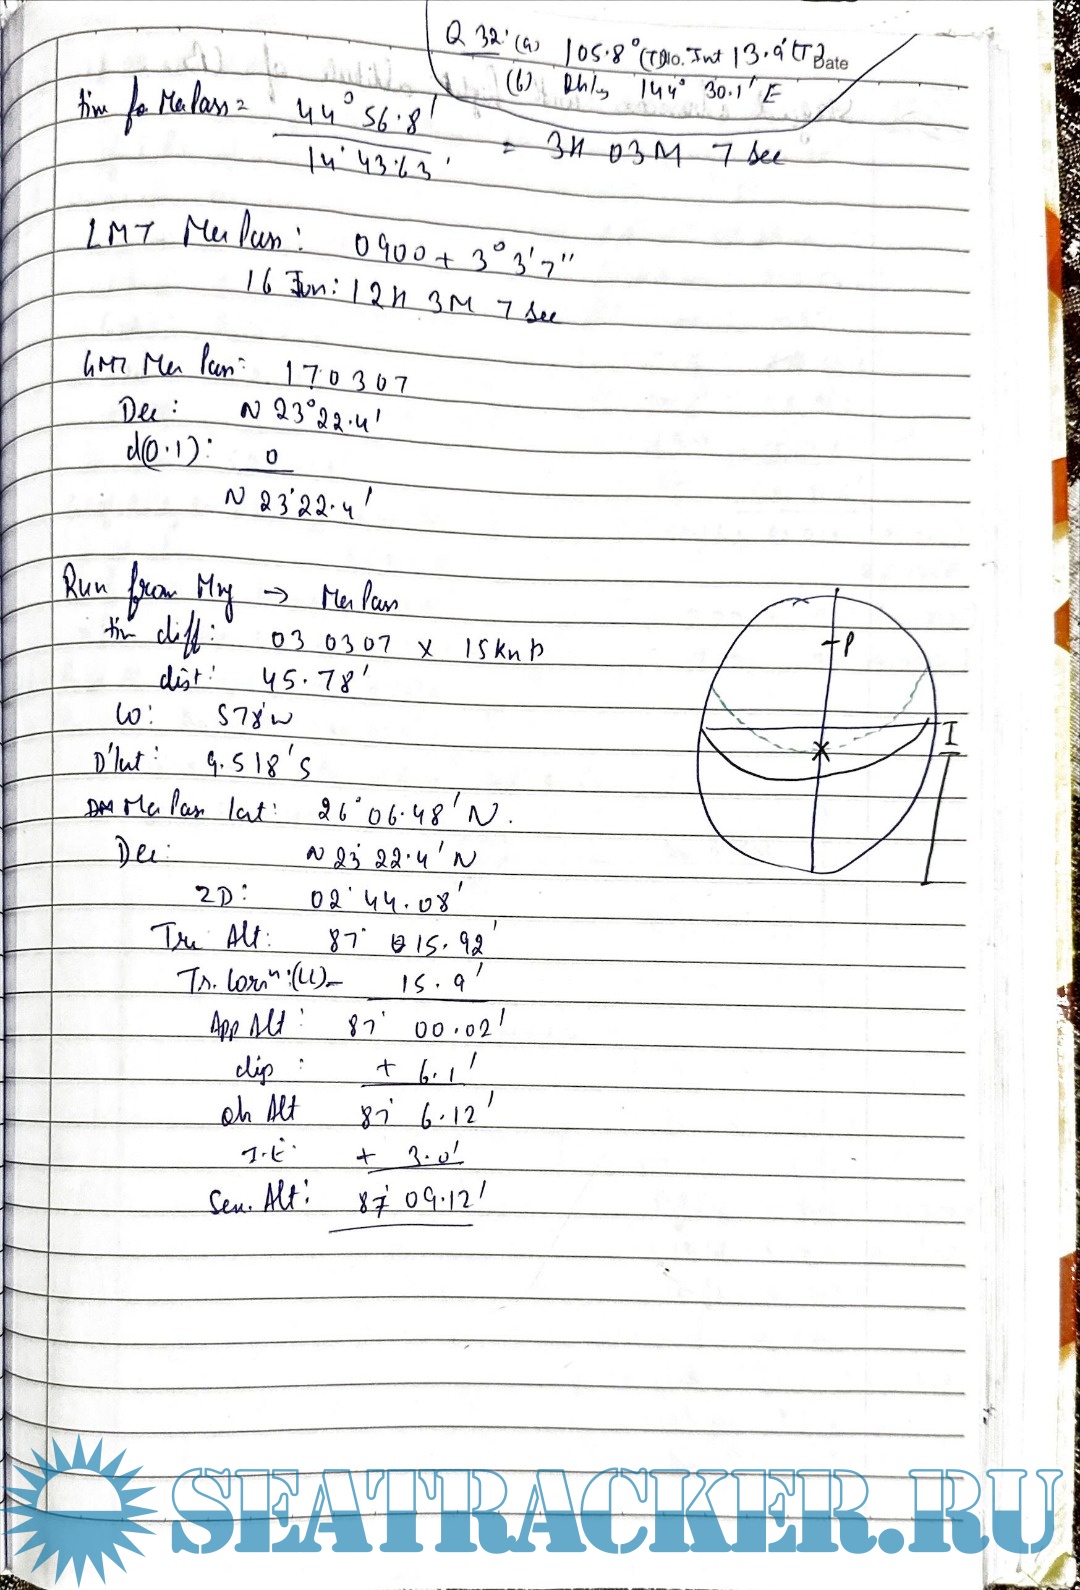 Q 32: (a) 105.8° (T) Int 13.9' (T)
Date
(b) 144° 30.1' E
44° 56.8'
14° 43.63' = 3H 03M 7 Sec
LMT Mer Pass: 0900 + 3° 3' 7"
16 Jun: 12H 3M 7 Sec
GMT Mer Pass: 170307
Dec: N 23° 22.4'
d(0.1): 0
N 23° 22.4'
Run from → Mer Pass
diff: 03 0307 x 15 knts
dist: 45.78'
Co: S78°W
D'lat: 9.518' S
Mer Pass lat: 26° 06.48' N.
Dec: N 23° 22.4' N
ZD: 02° 44.08'
Tru Alt: 87° 15.92'
T. Corrn: (LL) – 15.9'
App Alt: 87° 00.02'
dip: + 6.1'
Ob Alt 87° 6.12'
I.E: + 3.0'
Sex. Alt: 87° 09.12'
P
I
SEATRACKER.RU